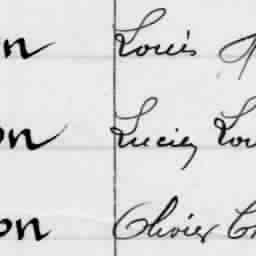 on Louis
on Lucien Lou
on Olivier